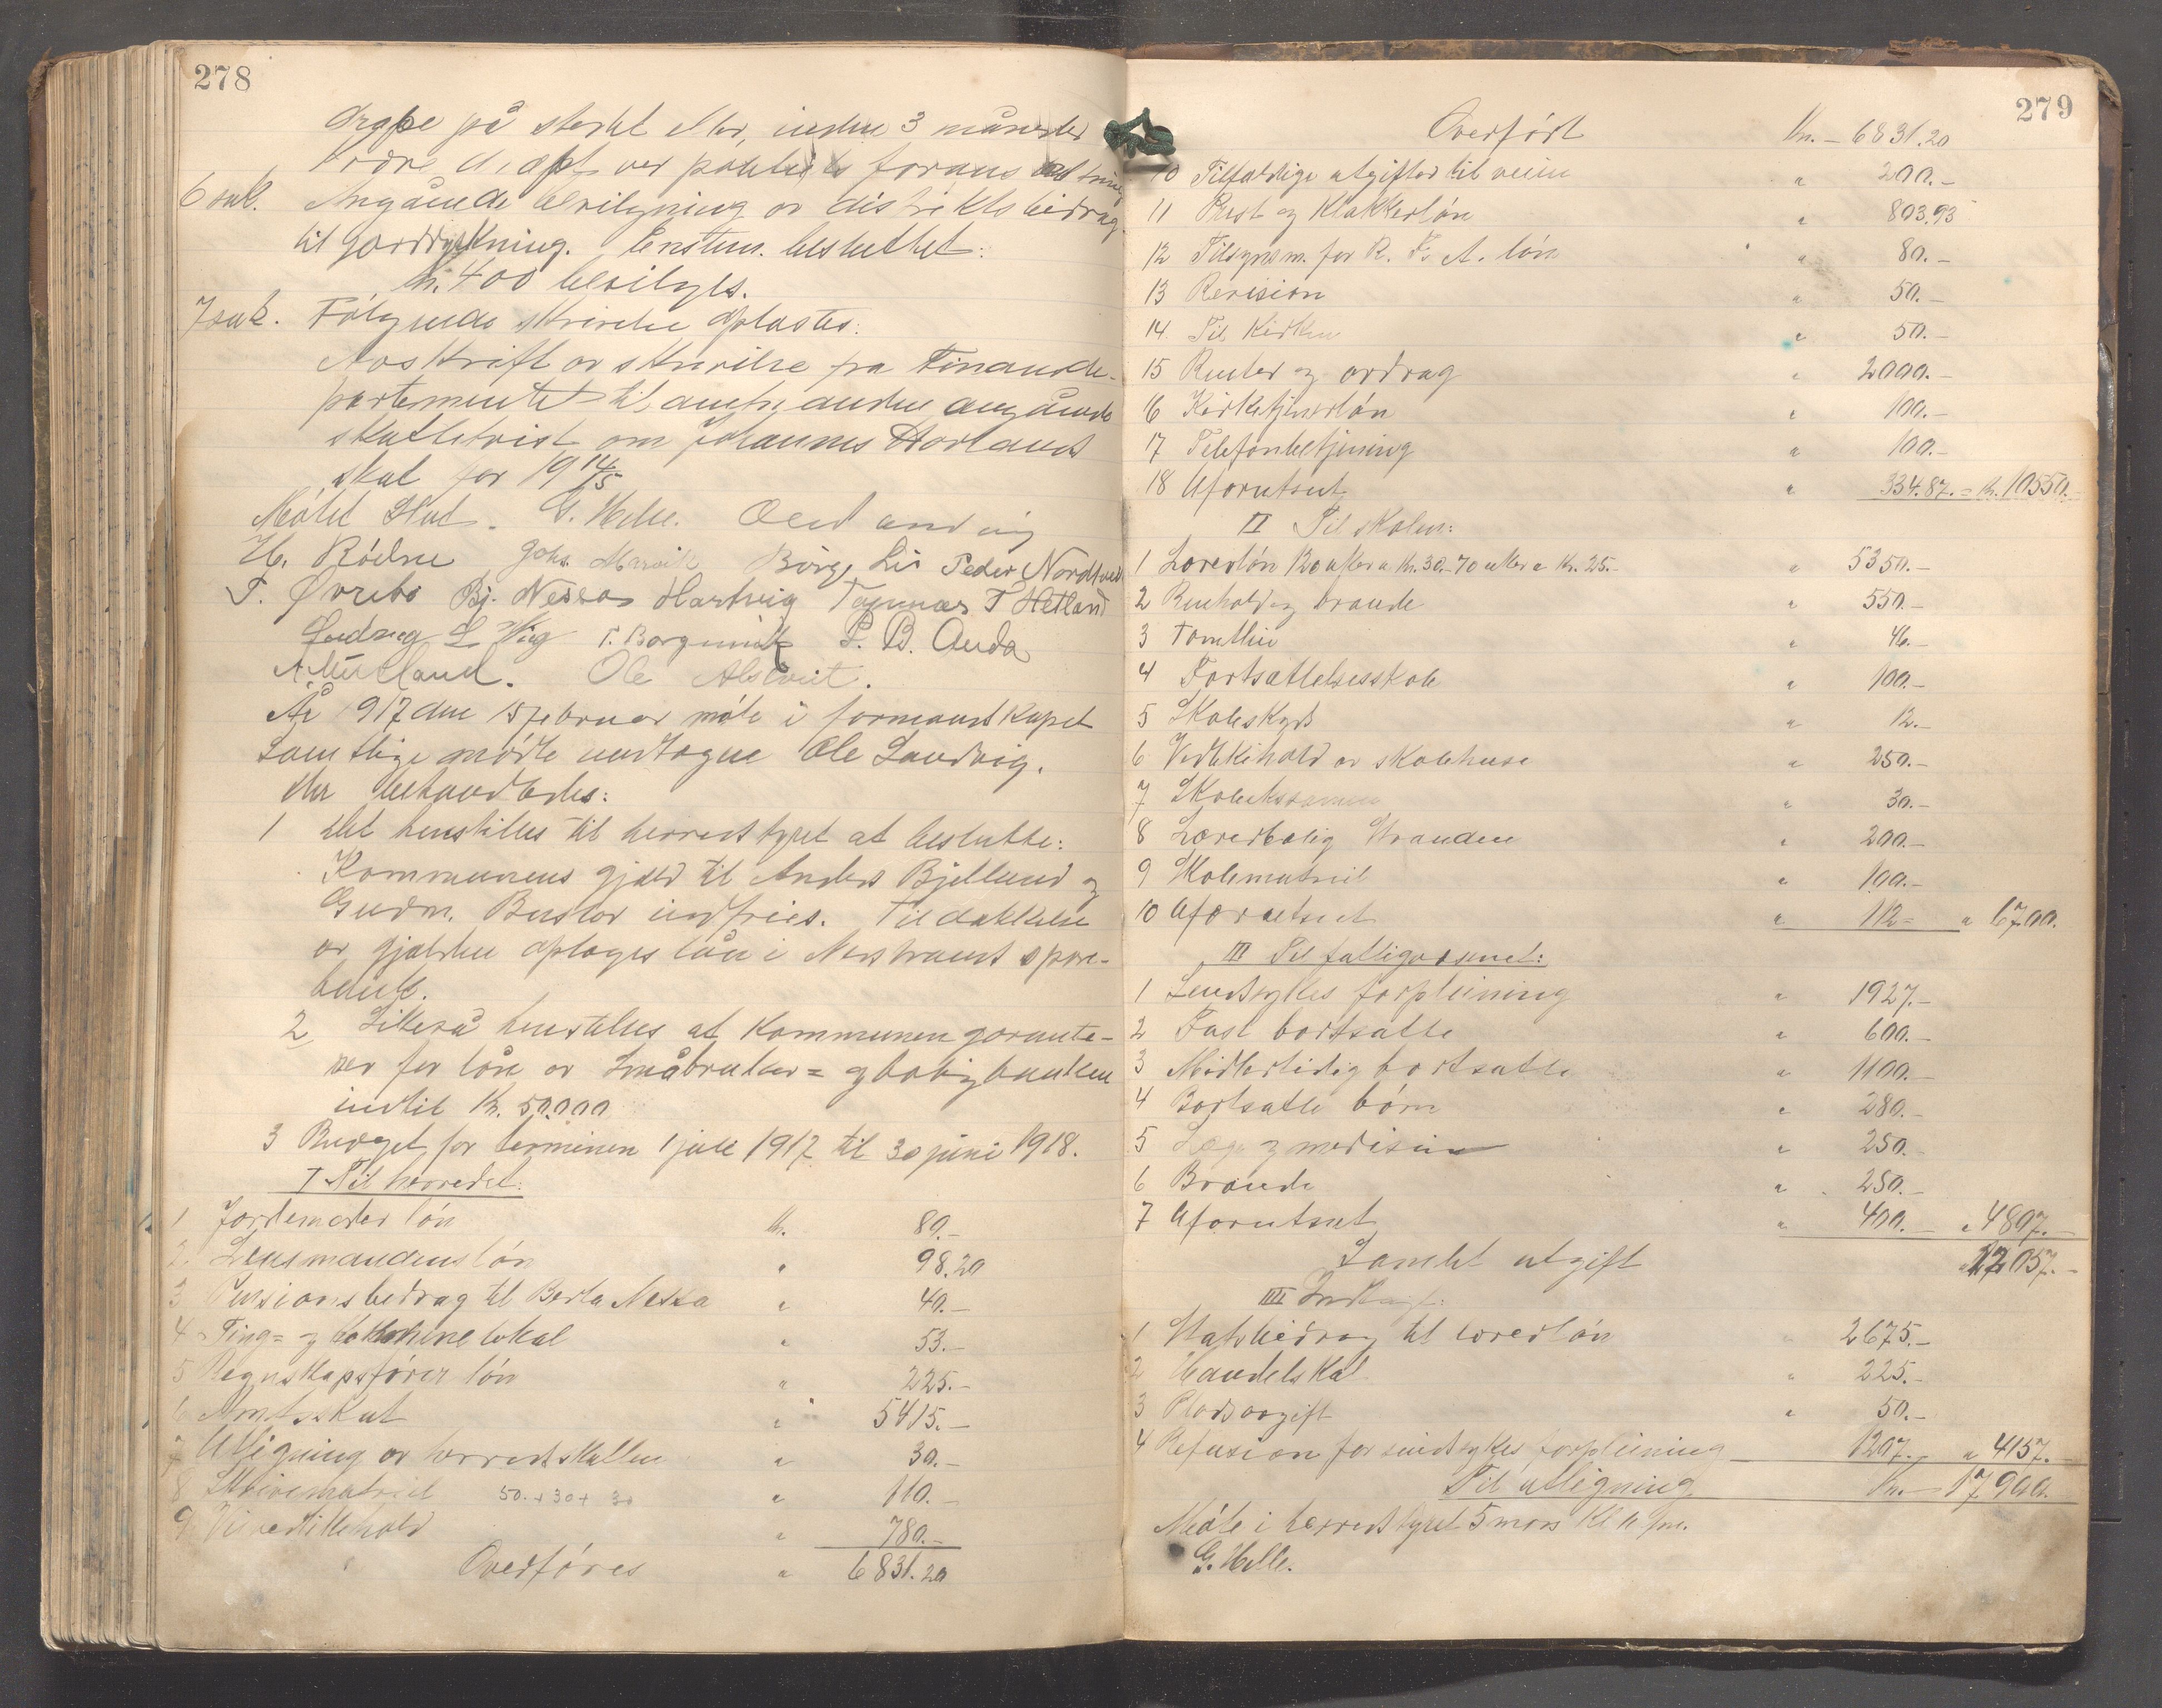 278
drage på sterkt eller, inden 3 måneder
6 sak. Angående bevilgning av distriktsbidrag
til jorddyrkning. Enstem. besluttet:
kr. 400 bevilges.
7 sak. Følgende skrivelse oplæstes:
Avskrift av skrivelse fra Finansde-
partementet til amtmanden angående
skattetvist om Johannes Høvlands
skat for 1914/5
Møtet slut. G. Helle.
H. Rödne Johs. Marvik Börge Lie Peder Nordtveit
T. Øvrebø Bj. Nessa Hartvig Tagnnæs T Hetland
Ludvig L Wiig T. Borgemoit P. B. Auda
Ole Alsvik.
År 1917 den 15 februar møte i formandskapet
Samtlige mødte undtagne Ole Landvig.
Der behandledes:
1 Det henstilles til herredstyret at beslutte:
Kommunens gjæld til Anders Bjelland og
Gudm. Barlor indfries. Til dækkelse
av gjælden optages lån i Nerstrands spare-
bank.
2 Likeså henstilles at kommunen garante-
rer for lån av Småbruker= og boligbanken
indtil Kr. 50.000
3 Budget for terminen 1 juli 1917 til 30 juni 1918.
I Til herredet:
1 Jordemoder løn kr. 80.-
2. Lensmandens løn " 98.20
3 Pensionsbedrag til Berta Nessa " 40.-
4 Ting= og lokal " 53.-
5 Regnskapsfører løn " 225.-
6 Amtsskat " 5415.-
7 Utligning av herredsskatten " 30.-
8 Skrivematriel 50.+30+30 " 110.-
9 Veivedlikehold " 780.-
Overføres " 6831.20
279
Overført Kr. - 6831.20
10 Tilfældige utgifter til veien " 200.-
11 Prest og Klokkerløn " 803.93
12 Tilsynsm. for R. F. A. løn " 80.-
13 Revision " 50.-
14 Til Kirken " 50.-
15 Renter og avdrag " 2000.-
16 Kirketjenerløn " 100.-
17 Telefonbetjening " 100.-
18 Uforutset " 334.87. = kr. 10550.-
II Til skolen:
1 Lærerløn 120 uker a kr. 30.- 70 uker a Kr. 25.- " 5350.-
2 Renhold og brænde " 550.-
3 Tomtleie " 46.-
4 Fortsættelsesskole " 100.-
5 Skoleskyds " 12.-
6 Vedlikehold av skolehuse " 250.-
7 Skoleeksamen " 30.-
8 Lærerbolig Stranden " 200.-
9 Skolematriel " 100.-
10 Uforutset " 112= " 6700.
III Til fattigvæsenet:
1 Sindsykes forpleining " 1927.-
2 Fast bortsatte " 600.-
3 Midlertidig bortsatte " 1100.-
4 Bortsatte børn " 280.-
5 Læge og medisin " 250.
6 Brænde " 250.-
7 Uforutset " 400.- " 4807.-
Samlet utgift 22057.-
IIII Indtægt:
1 Statsbedrag til lærerløn " 2675.-
2 Handelskat " 225.-
3 Pladsavgift " 50.-
4 Refusion for sindsykes forpleining 1207.- " 4157.-
Til utligning Kr. 17900.
Møte i herredstyret 5 mars Kl 11 fm.
G. Helle.